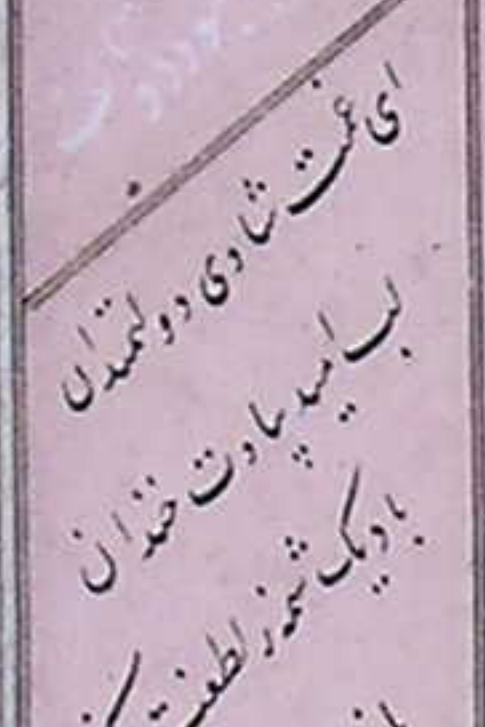 ای غمت شادی دولتمندان
لب امید بیادت خندان
با دیک شمه ز لطفت